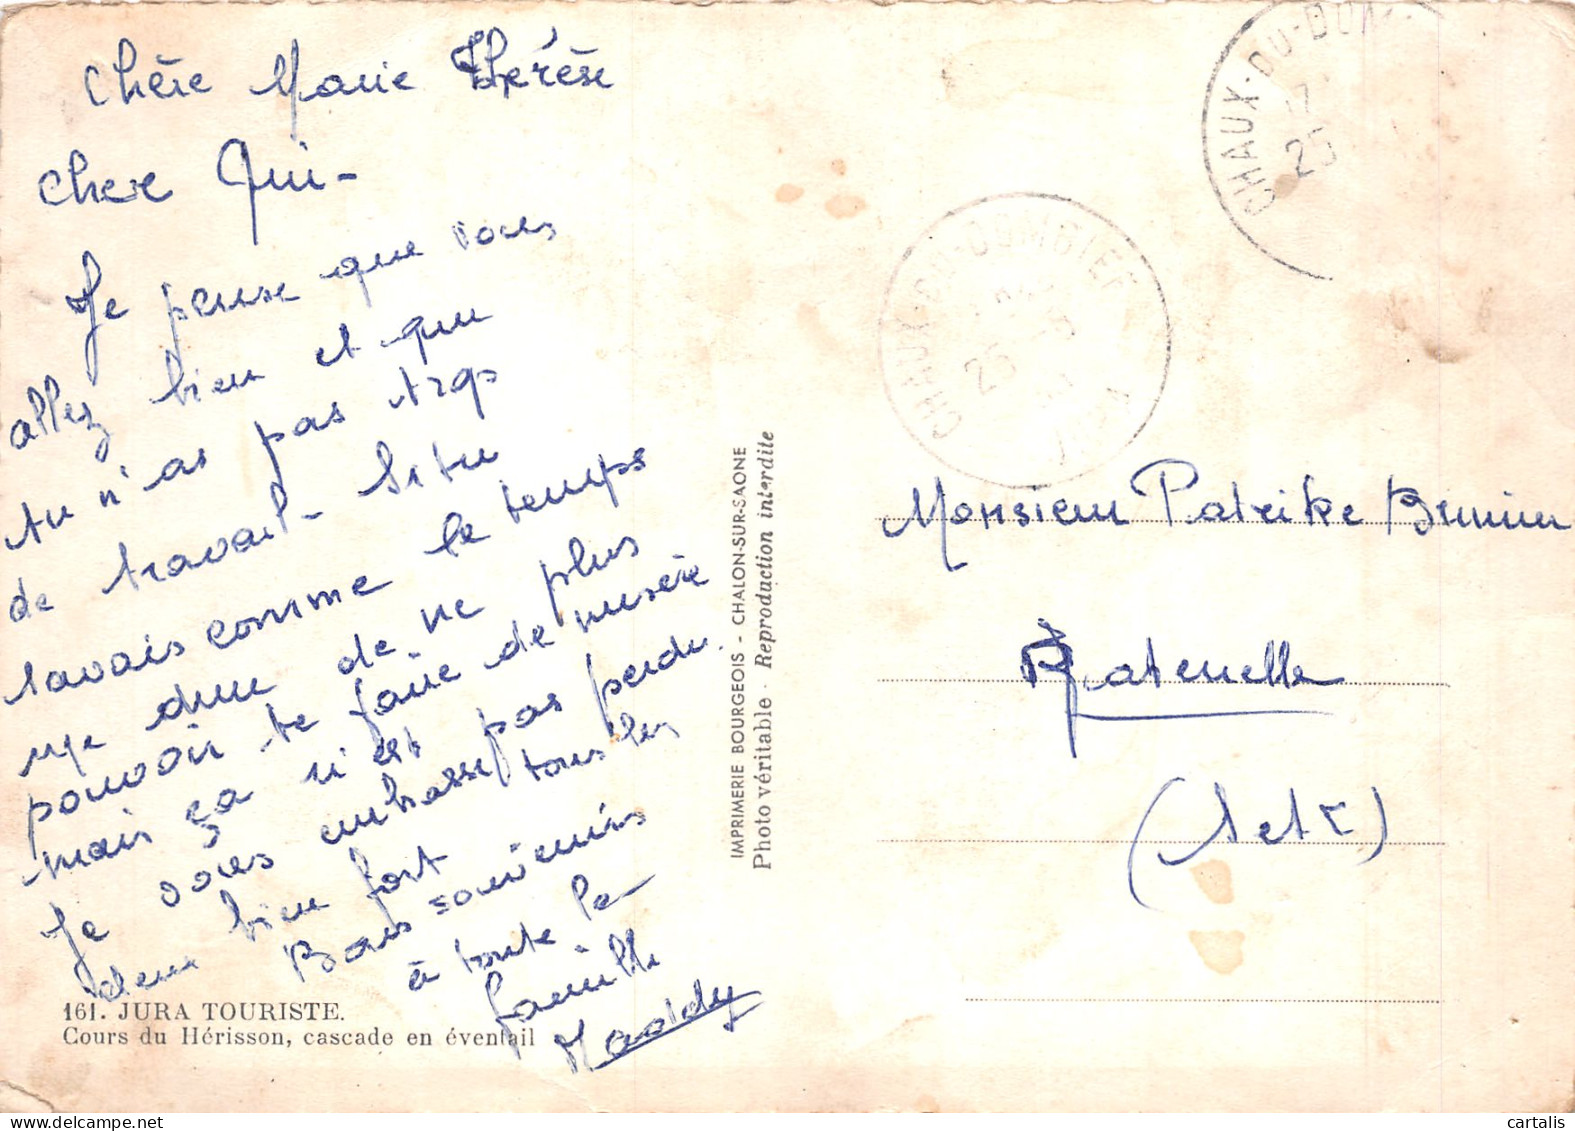 Chère Marie Thérèse
Chere
Je pense que vous
allez bien et que
tu n'as pas trop
de travail - Si tu
savais comme le temps
me dure de ne plus
pouvoir te faire de misère
mais ça n'est pas perdu.
Je vous embrasse tous les
deux bien fort
Bons souvenirs
à toute la
famille
Maddy
161. JURA TOURISTE.
Cours du Hérisson, cascade en éventail
IMPRIMERIE BOURGEOIS - CHALON-SUR-SAONE
Photo véritable - Reproduction interdite
CHAUX-DU-DOM
17
25
CHAUX-DU-DOMBIEF
25
Monsieur Patrike
Ratenelle
(Set L)
cartalis.com